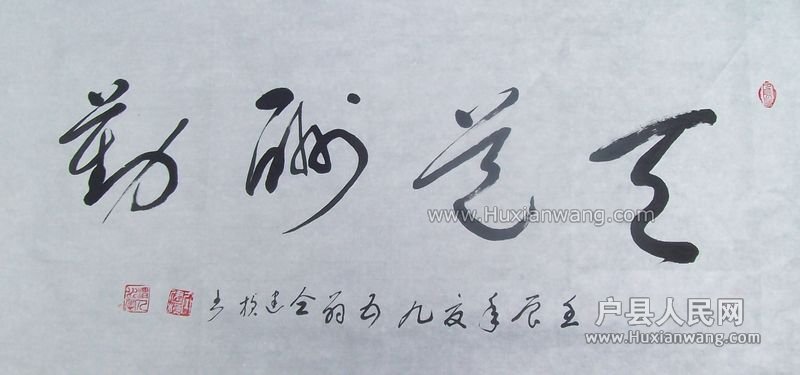 天道酬勤
www.Huxianwang.com
壬辰年夏九五翁仝建书
户县人民网
www.Huxianwang.com